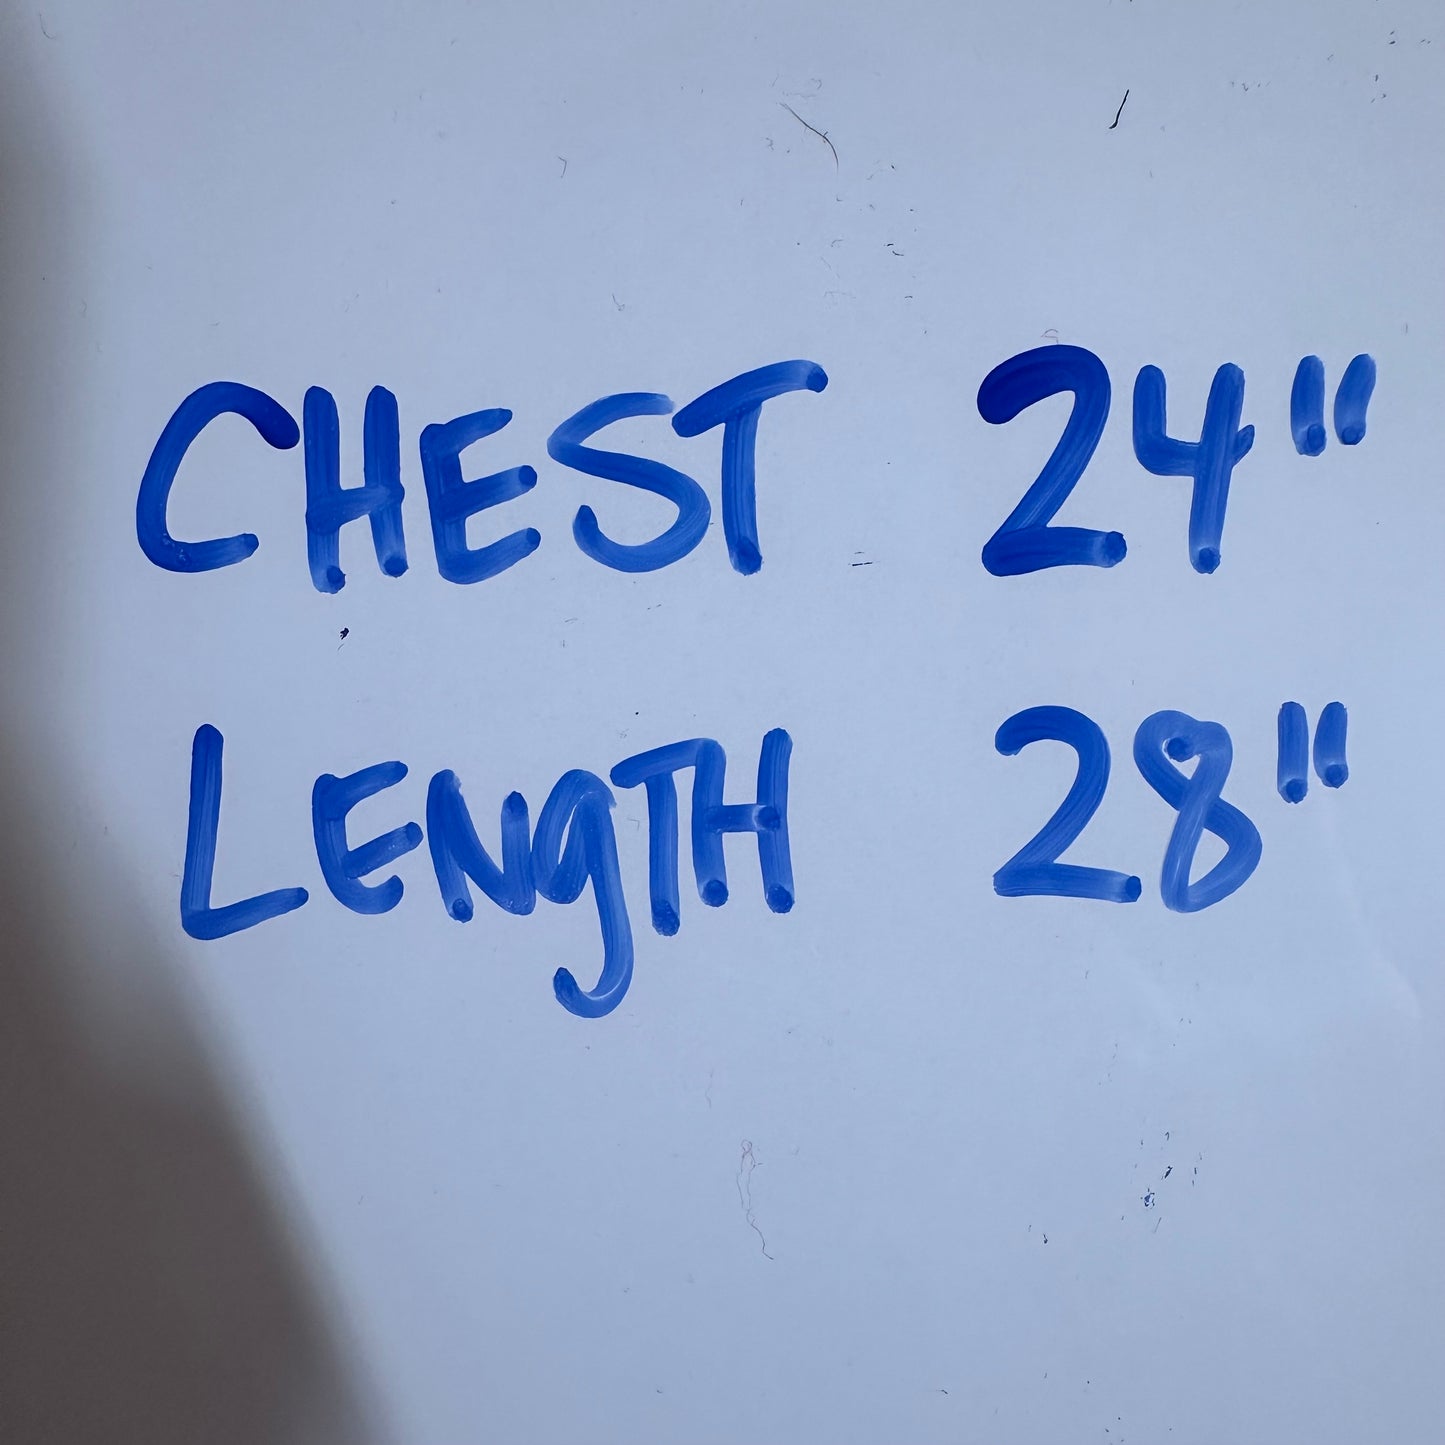 CHEST 24"
LENgTH 28"